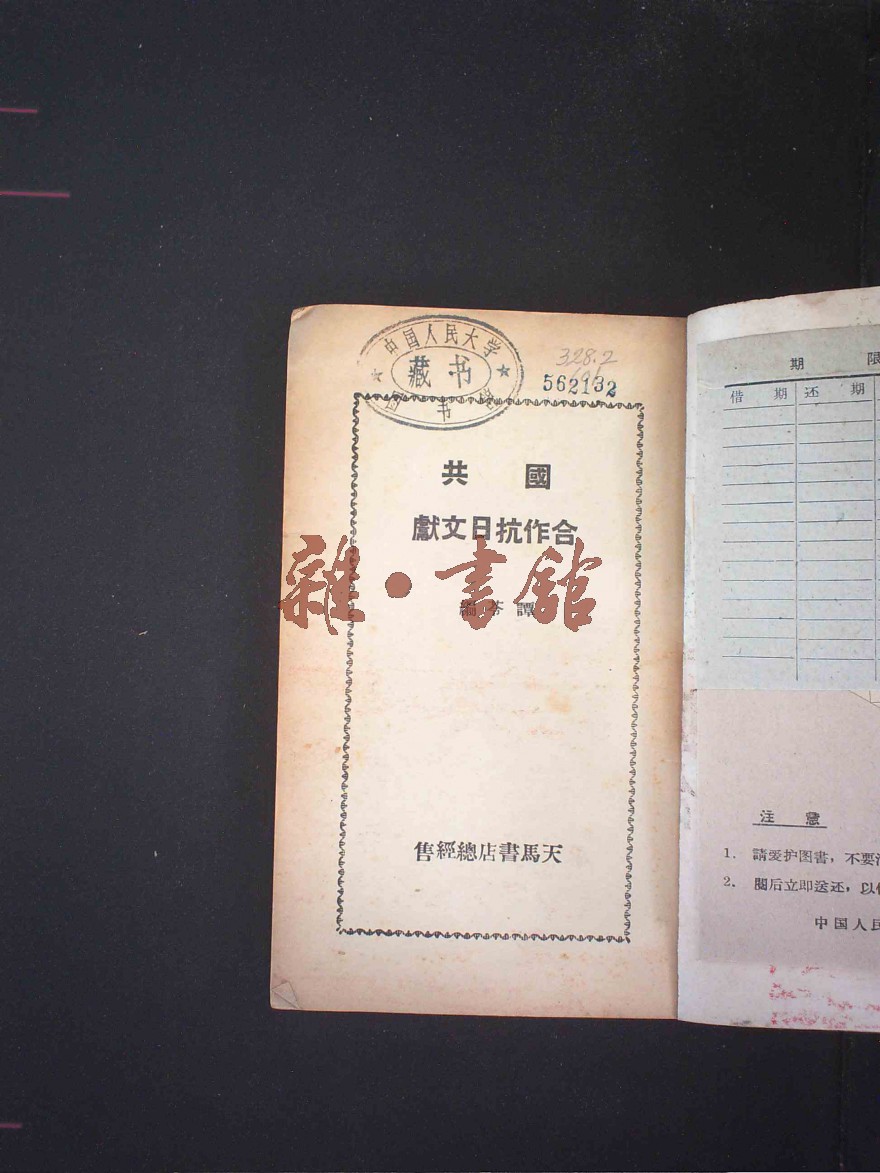 中国人民大学
藏书
328.2
562132
國共
合作抗日文獻
譚
編
天馬書店總經售
雜·書館
期限
借期 还期
注意
1. 請爱护图書，不要
2. 閱后立即送还，以
中国人民